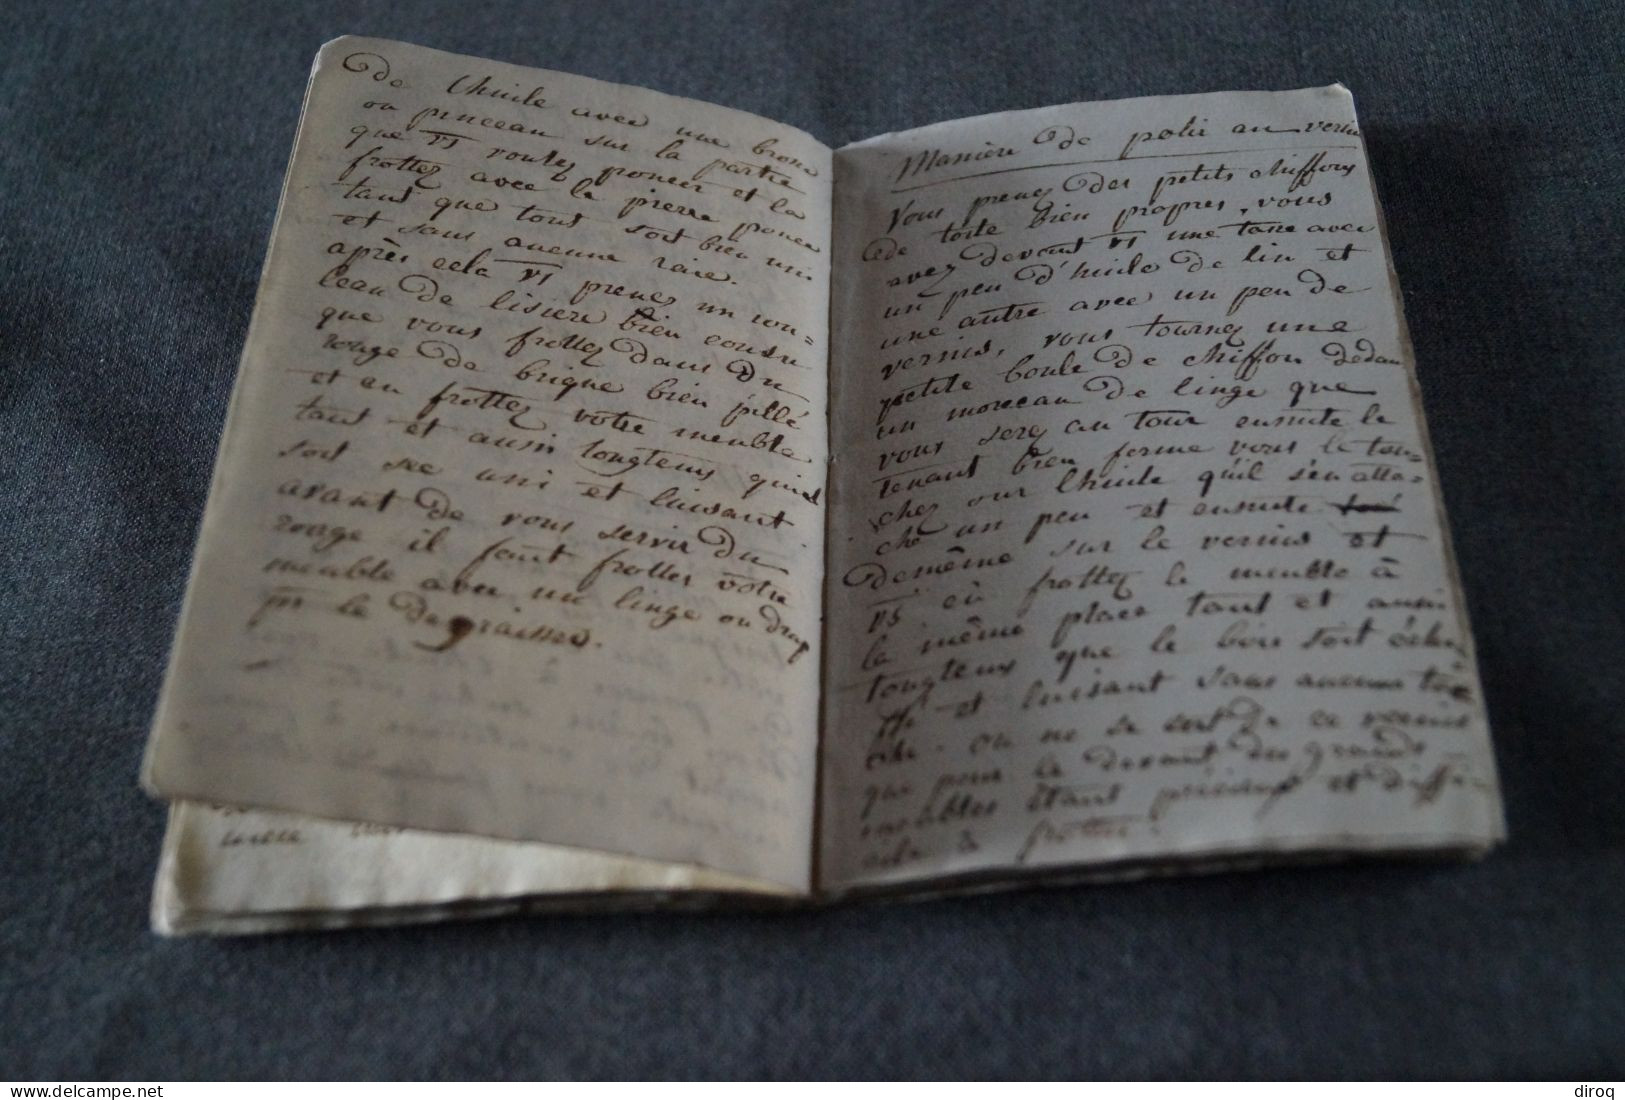 De lhuile avec une brosse
ou pinceau sur la partie
que vs voulez poncer et la
frottez avec la pierre ponce
tant que tout soit bien uni
et sans aucune raie.
après cela vs prenez un rou=
leau de lisiere bien cousu
que vous frottez dans du
rouge de brique bien pillé
et en frottez votre meuble
tant et aussi longtems qu'il
soit sec uni et luisant
avant de vous servir du
rouge il faut frotter votre
meuble avec un linge ou drap
pr le degraisser.
Manière de polir au vernis
Vous prenez des petits chiffons
de toile bien propres, vous
avez devant vs une tasse avec
un peu d'huile de lin et
une autre avec un peu de
vernis, vous tournez une
petite boule de chiffon dedans
un morceau de linge que
vous serez au tour ensuite le
tenant bien ferme vous le tou=
chez sur lhuile qu'il s'en atta=
che un peu et ensuite
demême sur le vernis et
vs en frottez le meuble à
la même place tant et aussi
longtems que le bois soit éclair
et luisant sans aucune tâ
che. on ne se sert de ce vernis
que pour le devant des grands
meubles étant précieux et diffi=
cile à frotter.